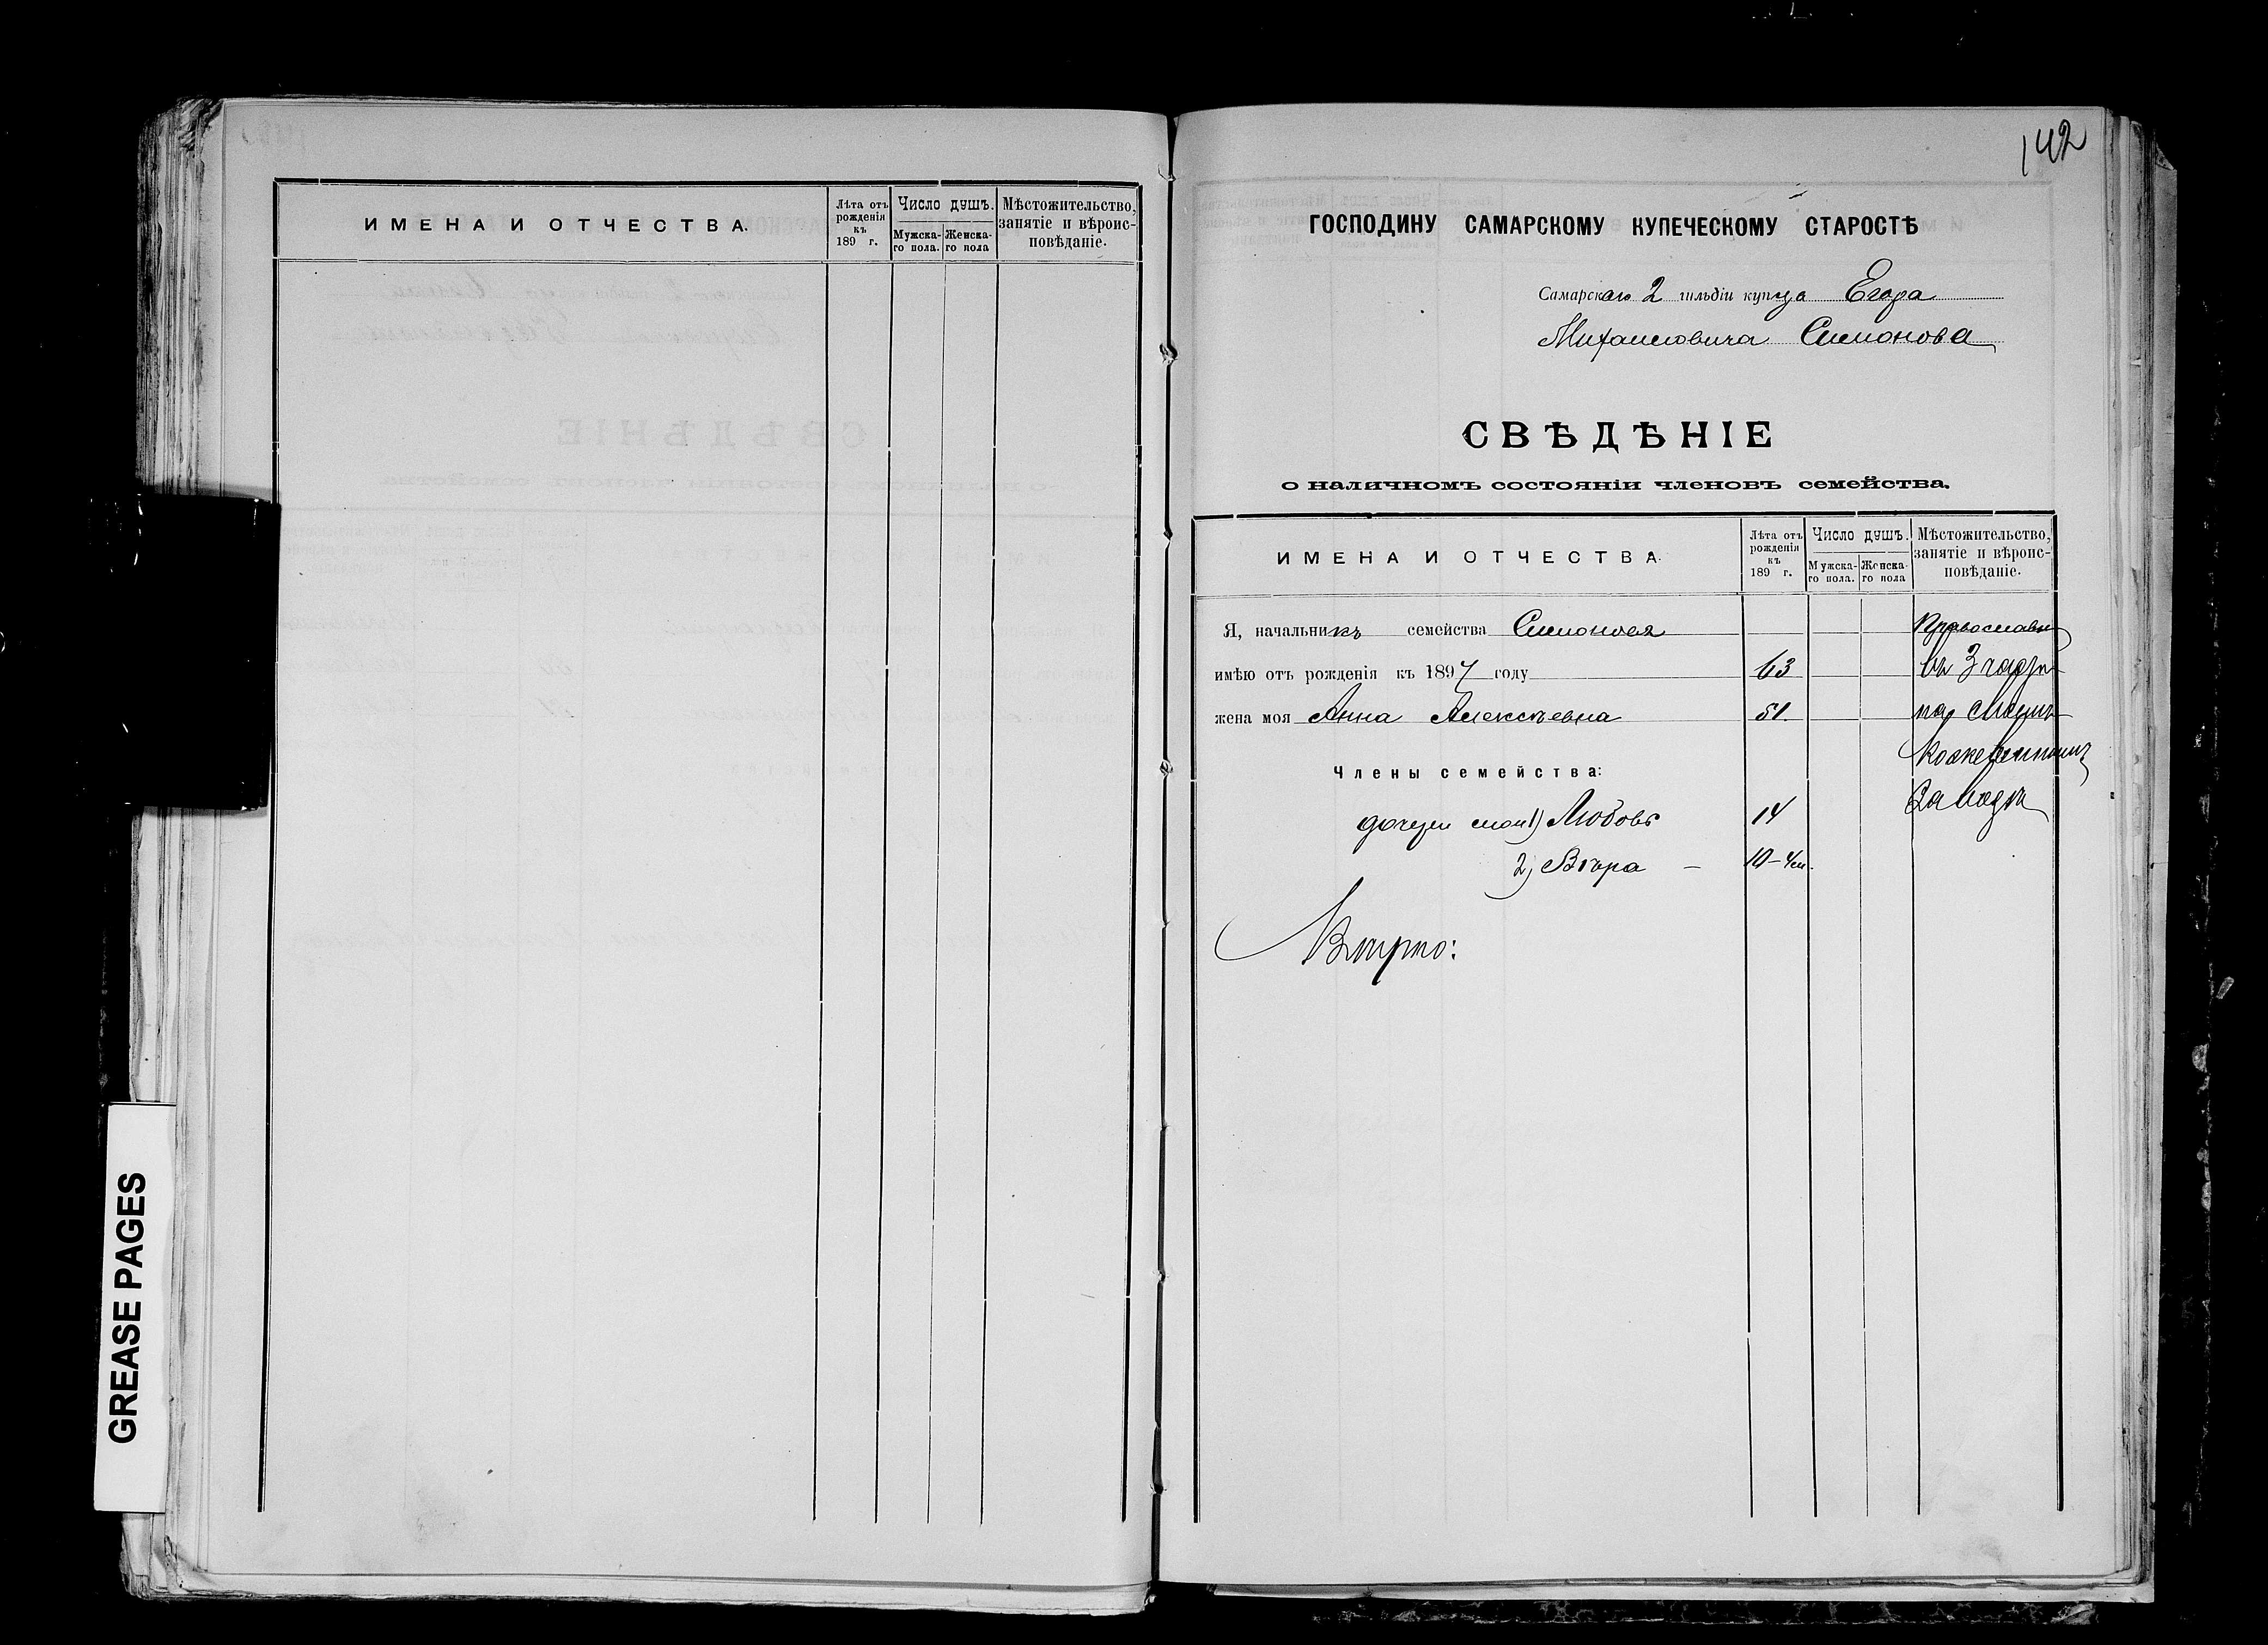 ИМЕНА И ОТЧЕСТВА.
Лѣта отъ рожденія къ 189 г.
Число душъ.
Мужска-го пола.
Женска-го пола
Мѣстожительство, занятіе и вѣроис-повѣданіе.
142
ГОСПОДИНУ САМАРСКОМУ КУПЕЧЕСКОМУ СТАРОСТѢ
Самарскаго 2 гильдіи купца Егора
Михаиловича Симонова
СВѢДѢНІЕ
о наличномъ состояніи членовъ семейства.
ИМЕНА И ОТЧЕСТВА.
Лѣта отъ рожденія къ 189 г.
Число душъ.
Мужска-го пола.
Женска-го пола
Мѣстожительство, занятіе и вѣроис-повѣданіе.
Я, начальникъ семейства Симонова Православн
имѣю отъ рожденія къ 1897 году 63 въ 3 части
жена моя Анна Алексѣевна 51.
Члены семейства:
дочери мои 1) Любовь 14
2) Вѣра — 10-4м.
Вѣрно:
GREASE PAGES